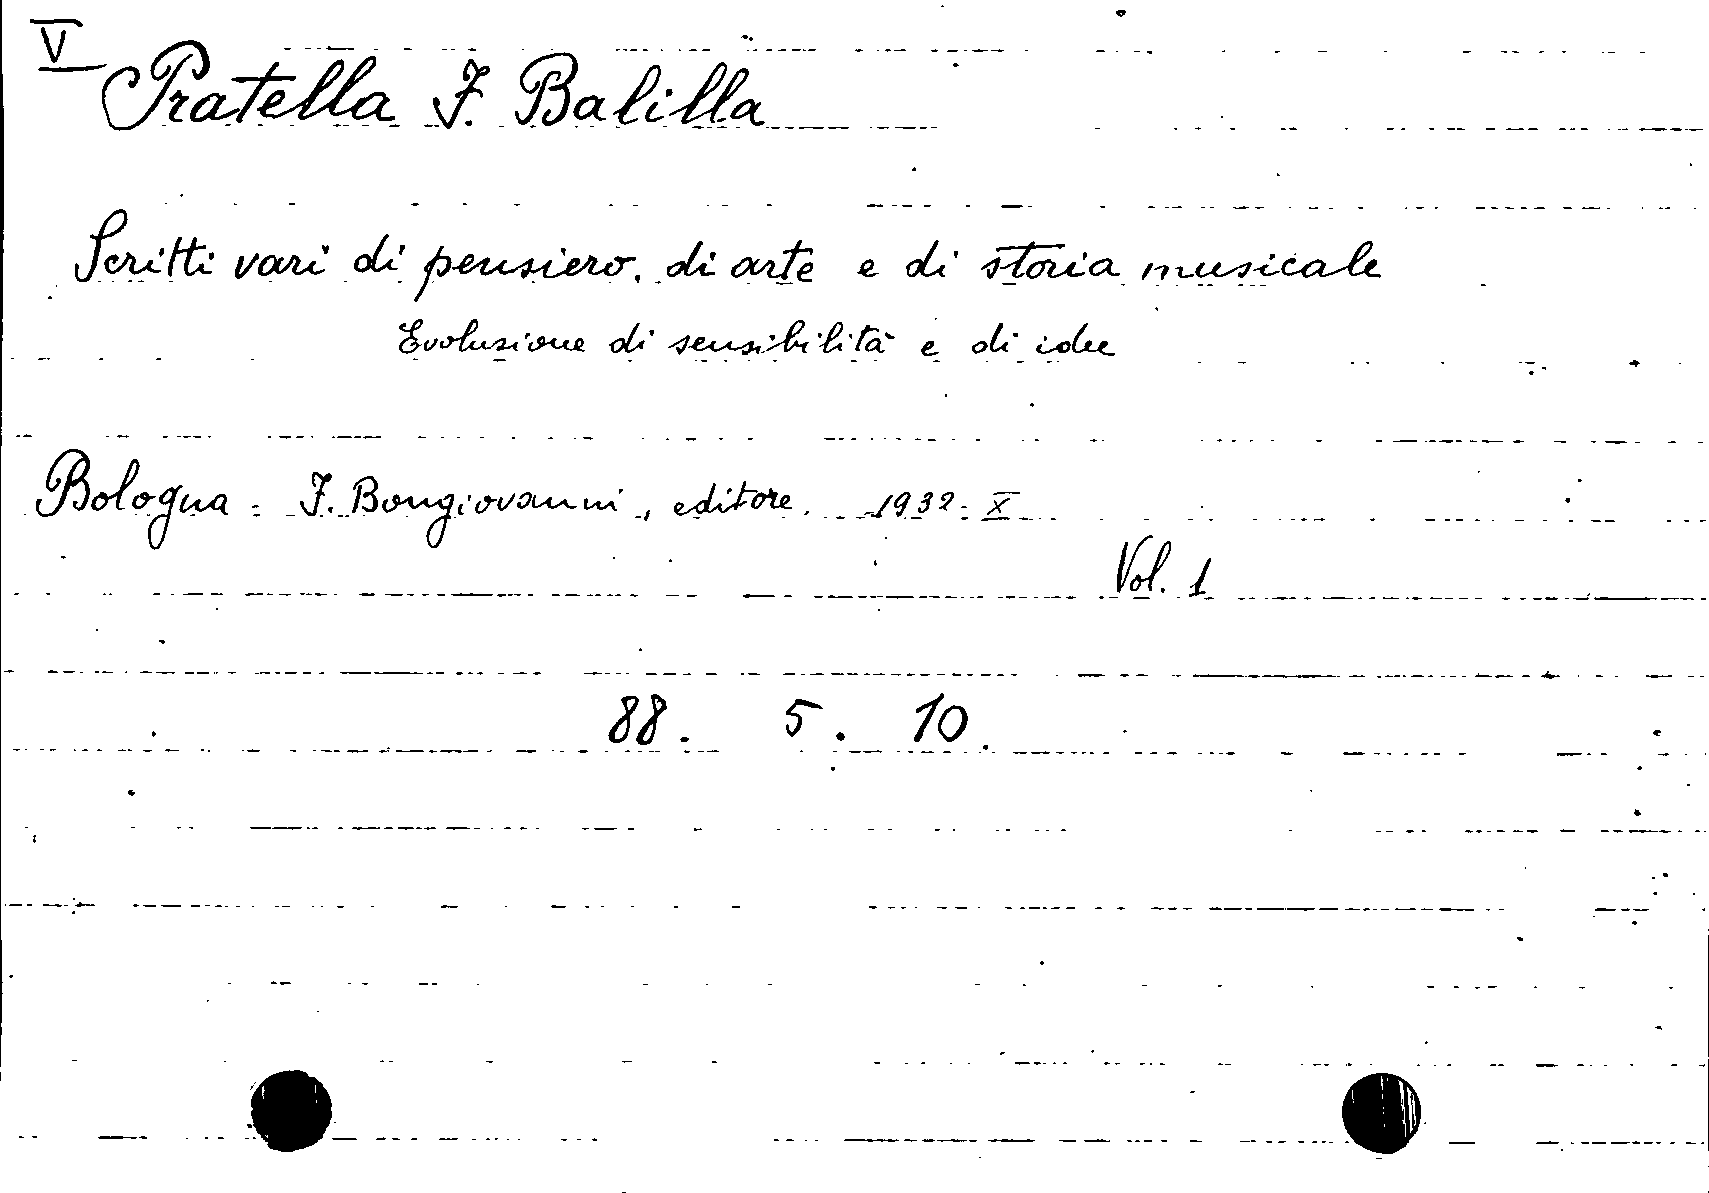 V
Pratella F. Balilla
Scritti vari di pensiero, di arte e di storia musicale
Evoluzione di sensibilità e di idee
Bologna - F. Bongiovanni, editore. 1932-X
Vol. 1
88. 5. 10.